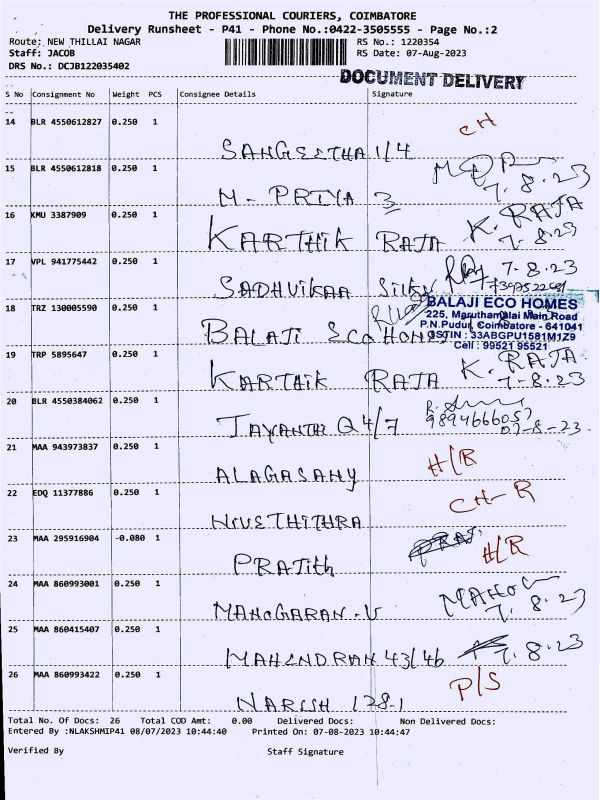 THE PROFESSIONAL COURIERS, COIMBATORE
Delivery Runsheet - P41 - Phone No.:0422-3505555 - Page No.:2
Route: NEW THILLAI NAGAR RS No.: 1220354
Staff: JACOB RS Date: 07-Aug-2023
DRS No.: DCJB122035402
DOCUMENT DELIVERY
S No Consignment No Weight PCS Consignee Details Signature
14 BLR 4550612827 0.250 1 CH
SANGEETHA 1/4
15 BLR 4550612818 0.250 1
7.8.23
M- PRIYA 3
16 KMU 3387909 0.250 1 K. RAJA
KARTHIK RAJA 7-8.23
17 VPL 941775442 0.250 1 7-8.23
SADHVIKAA SILKS
18 TRZ 130005590 0.250 1 BALAJI ECO HOMES
225, Maruthamalai Main Road
P.N.Pudur, Coimbatore - 641041
BALAJI ECO HOMES GSTIN : 33ABGPU1581M1Z9
Cell : 99521 95521
19 TRP 5895647 0.250 1 K. RAJA
KARTHIK RAJA 7-8.23
20 BLR 4550384062 0.250 1
9894666057
JAYANTHI Q4/7 07-8-23-
21 MAA 943973837 0.250 1 H/R
ALAGASAMY
22 EDQ 11377886 0.250 1 CH-R
NIVETHITHRA
23 MAA 295916904 -0.080 1 H/R
PRAJith
24 MAA 860993001 0.250 1 MANO
MANOGARAN-V 7.8.23
25 MAA 860415407 0.250 1
MAHENDRAN 43/46 7.8.23
26 MAA 860993422 0.250 1 P/S
NARESH 128-1
Total No. Of Docs: 26 Total COD Amt: 0.00 Delivered Docs: Non Delivered Docs:
Entered By :NLAKSHMIP41 08/07/2023 10:44:40 Printed On: 07-08-2023 10:44:47
Verified By Staff Signature